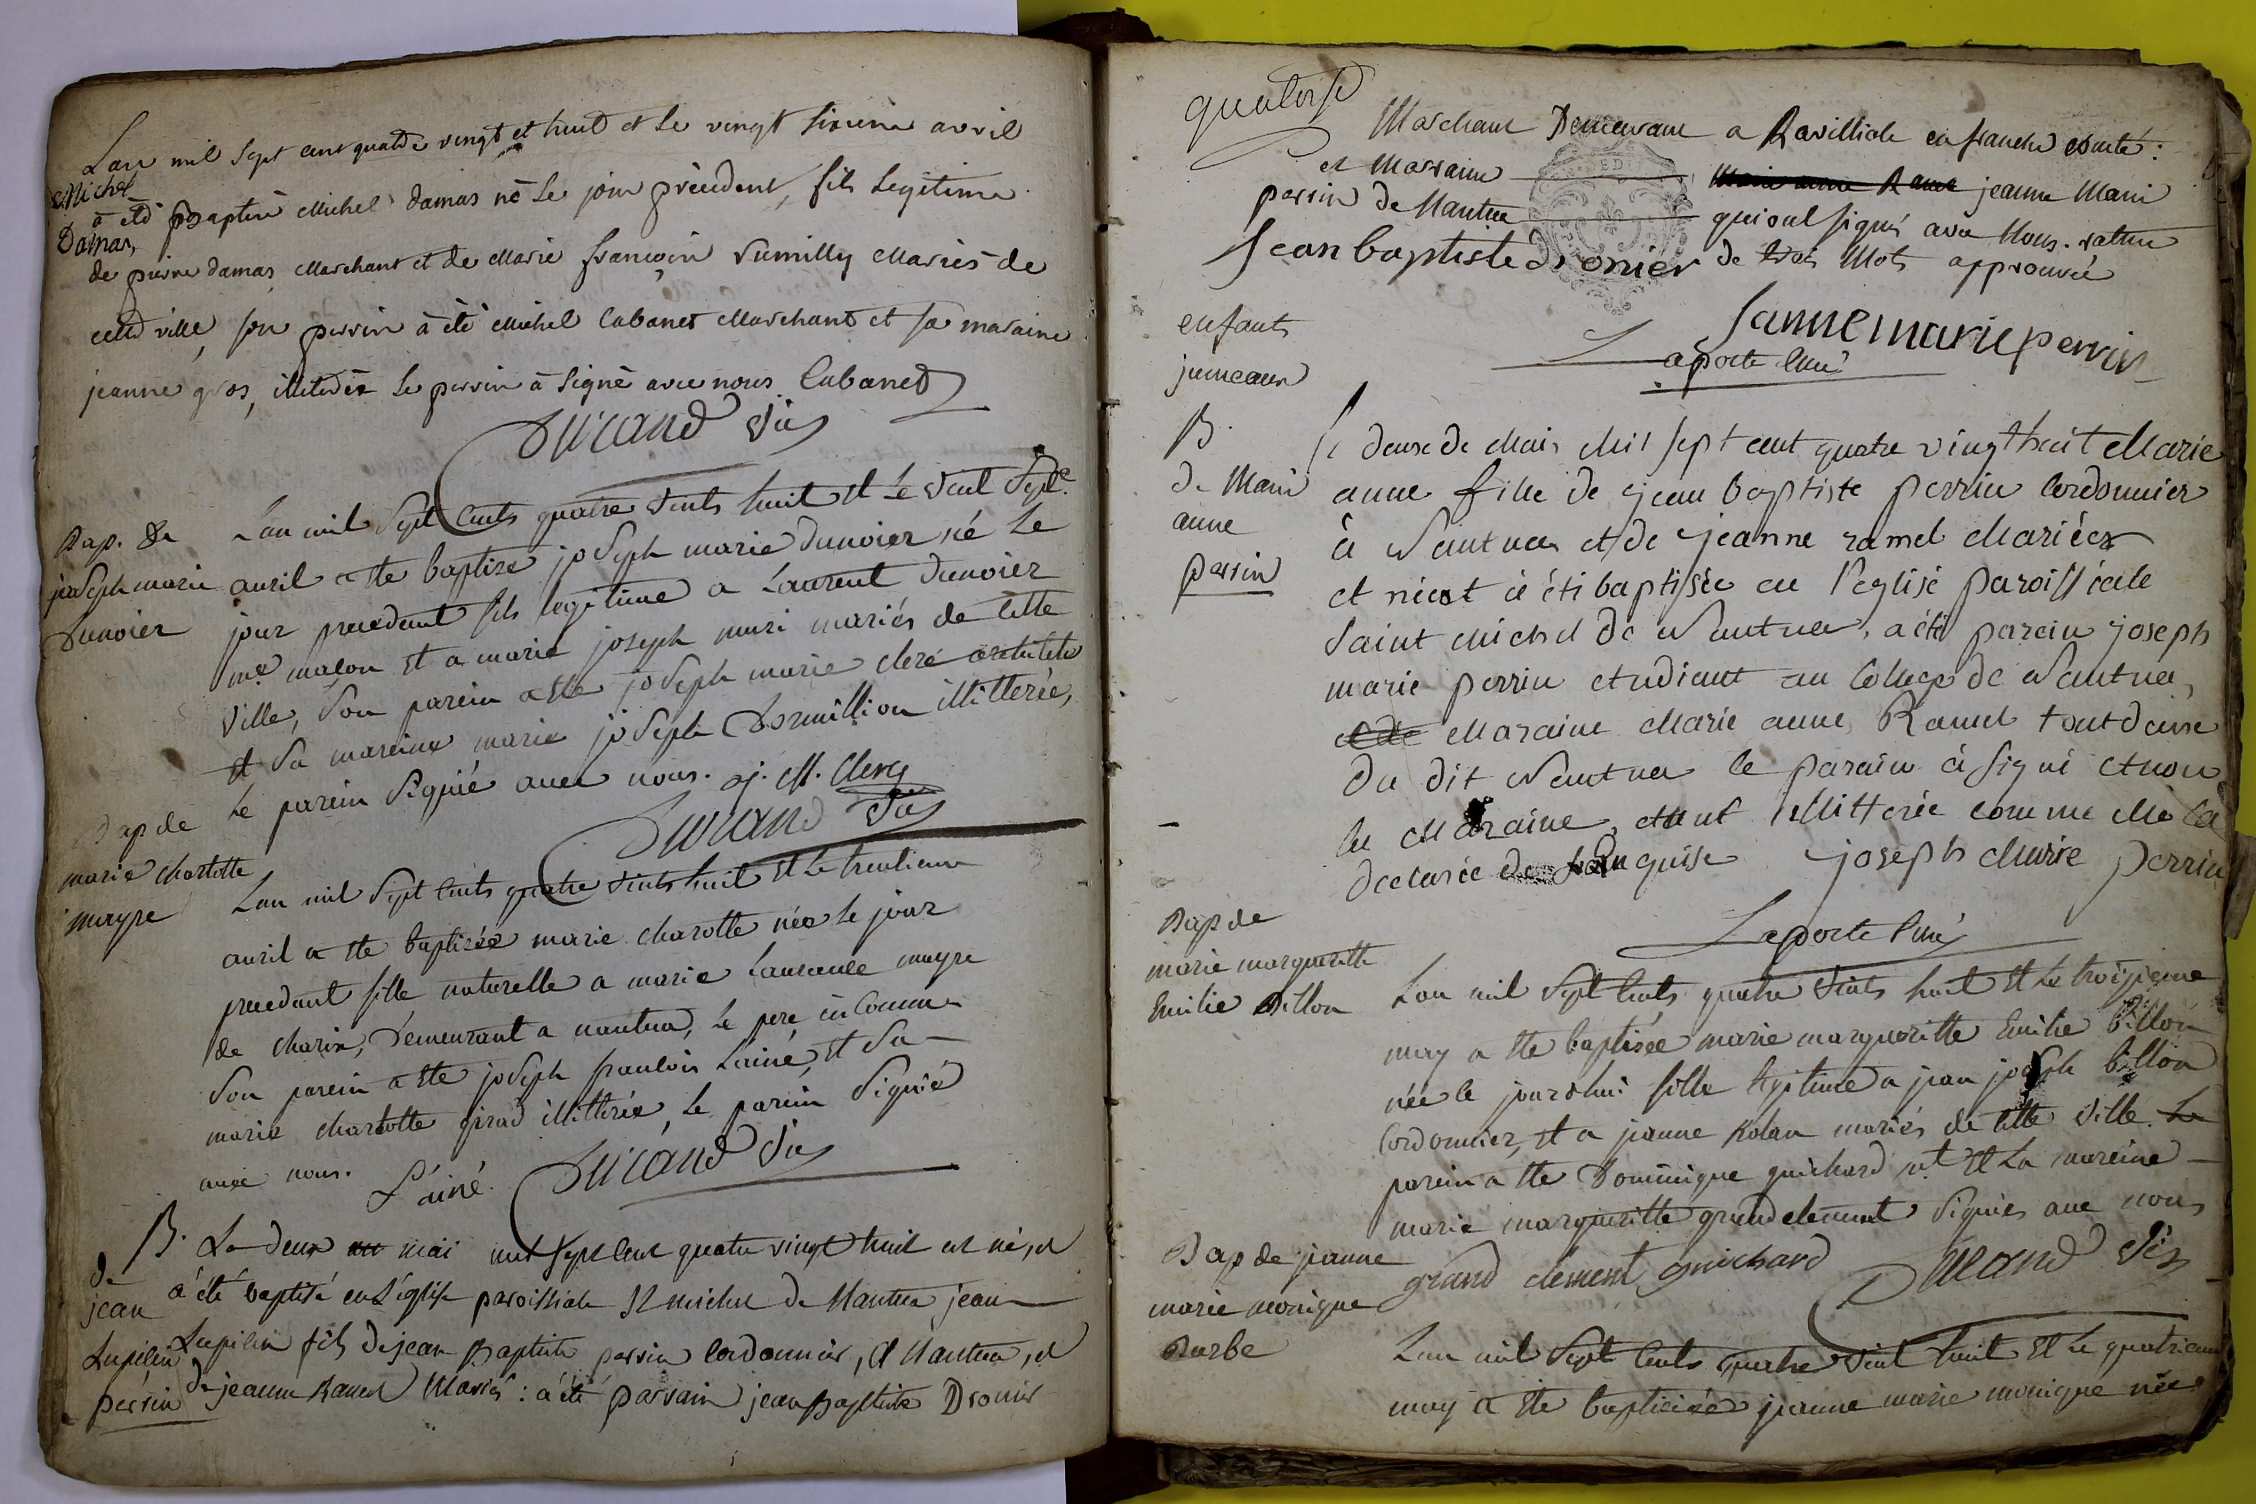 Lan mil sept cent quatre vingt et huit et le vingt sixieme avril
Michel
à été Baptisé Michel damas né le jour précédent, fils legitime
Damas,
de pierre damas marchant et de marie françoise Rumilly mariés de
cette ville, son perrin à été michel Cabanet marchant et sa maraine
jeanne gros, illiterée le perrin à signé avec nous Cabanet
Durand Vic
Bap. de
joseph marie
Dunoier
Lan mil Sept Cents quatre vints huit et le vint Sept.e
auril a ete baptize joseph marie dunoier né le
jour precedant fils legitime a Laurent dunoier
me. maçon et a marie joseph muri mariés de cette
ville, Son parein a ete joseph marie cleré architecte
et Sa mareine marie joseph Dormillion illitterée,
le parein Signié auec nous. j. M. Clerc
Durand Vic
Bap de
marie charlotte
mayre
Lan mil Sept Cents quatre vints huit et le trentieme
auril a ete baptizée marie charotte née le jour
precedant fille naturelle a marie Laurence mayre
de charix, Demeurant a nantua, le pere inConnu
Son parein a ete joseph francois Lainé, et Sa
marie charlotte girad illittirée, le parein Signié
auec nous. L'ainé. Durand Vic
B.
de
jean
Lupicin
perrin
Le deux mai mil sept cent quatre vingt huit est né, et
a été baptisé en L'église paroissiale St michel de Nantua jean
Lupicin fils de jean Baptiste perrin Cordonnier, a Nantua, et
de jeanne Ramel Mariés : a été parrain jean Baptiste Dronier
quatorse
Marchant Demeurant a Ravilliole en franche comté :
et Marraine Marie anne Ramel jeanne Marie
perrin de Nantua qui ont signé avec Nous. rature
Jean baptiste dronier de trois Mots approuvée
Janne marie perrin
Laporte Curé
enfants
jumeaux
B.
de Marie
anne
perrin
Le deux de Mais Mil sept cent quatre vingt huit Marie
anne fille de jean baptiste perrin Cordonnier
à Nantua et de jeanne ramel Mariées
et néest à été baptisée en l'eglise paroissiale
Saint Michel de Nantua, a été parain joseph
marie perrin etudiant au College de Nantua,
et de Maraine Marie anne Ramel tout deux
du dit Nantua le parain à signé et non
la Maraine, etant illitterée comme elle la
declarée de requise joseph Marie perrin
Laporte Curé
Bap de
marie margueritte
Emilie Billon
Lan mil Sept Cents quatre vints huit et le troizieme
may a ete baptisée marie margueritte Emilie billon
née le jourdhui fille legitime a jean joseph billon
Cordonnier, et a jeanne Rolan mariés de cette ville. Le
parein a ete Dominique guichard et la mareine
marie margueritte grandclement Signiés auec nous
grand clement guichard Durand Vic
Bap de jeanne
marie monique
Barbe
Lan mil Sept Cents quatre vint huit et le quatrieme
may a ete baptizée jeanne marie monique née